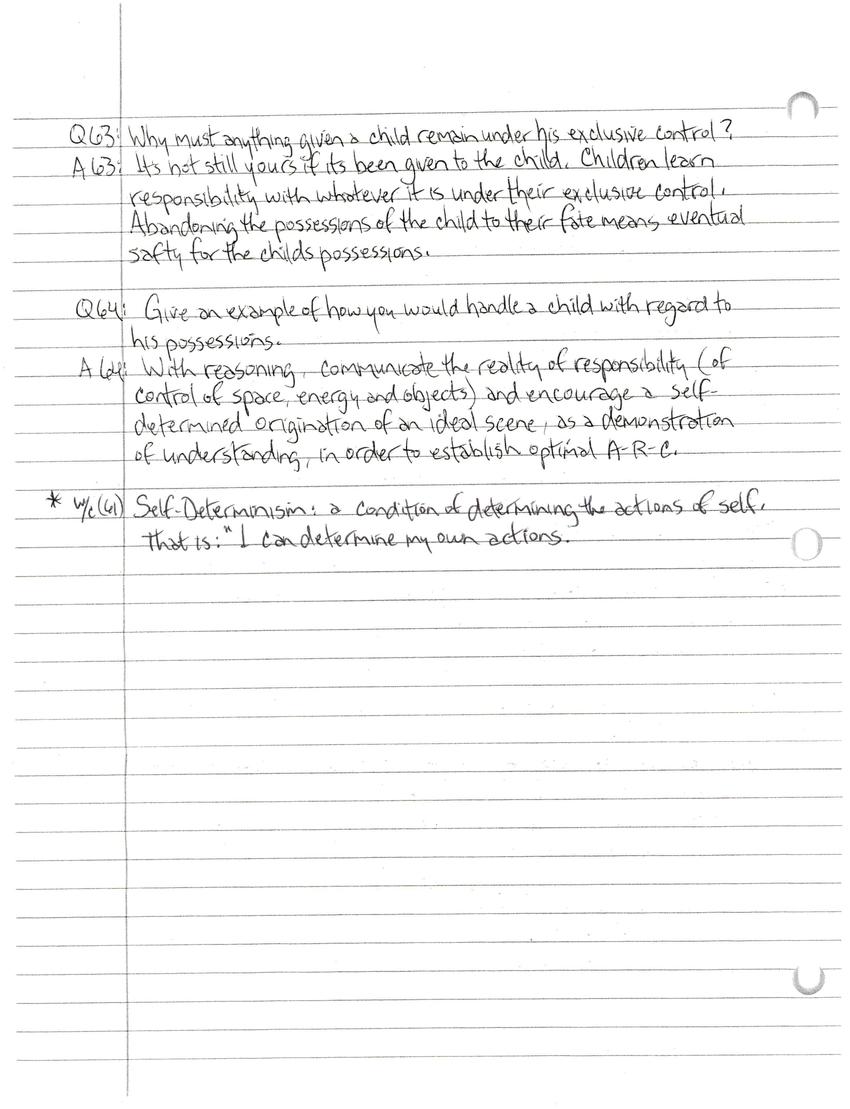 Q63: Why must anything given a child remain under his exclusive control?
A63: Its not still yours if its been given to the child. Children learn
responsibility with whatever it is under their exclusive control.
Abandoning the possessions of the child to their fate means eventual
safty for the childs possessions.
Q64: Give an example of how you would handle a child with regard to
his possessions.
A64: With reasoning, communicate the reality of responsibility (of
control of space, energy and objects) and encourage a self-
determined origination of an ideal scene, as a demonstration
of understanding, in order to establish optimal A-R-C.
* w/c (61) Self-Determinism: a condition of determining the actions of self.
That is: "I can determine my own actions.